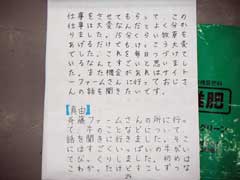 仕事をさせてもらって、この
仕事は大変なんだとよく分か
りました。15分くらい牧草を
あげるだけでもけっこう大変
だったので、これを毎日つづけて
いるなんてすごいと思いまし
た。また機会があればサイト
ーファームさんに行っておじさ
んの話を聞きたいです。
【真由】
斉藤ファームさんの所に行っ
て、牛のことなどについて、
話を聞きに行きました。そこ
にはすごくいっぱいの牛がい
て、びっくりしました。初めは
こわかったけれど、少しずつな
堆肥